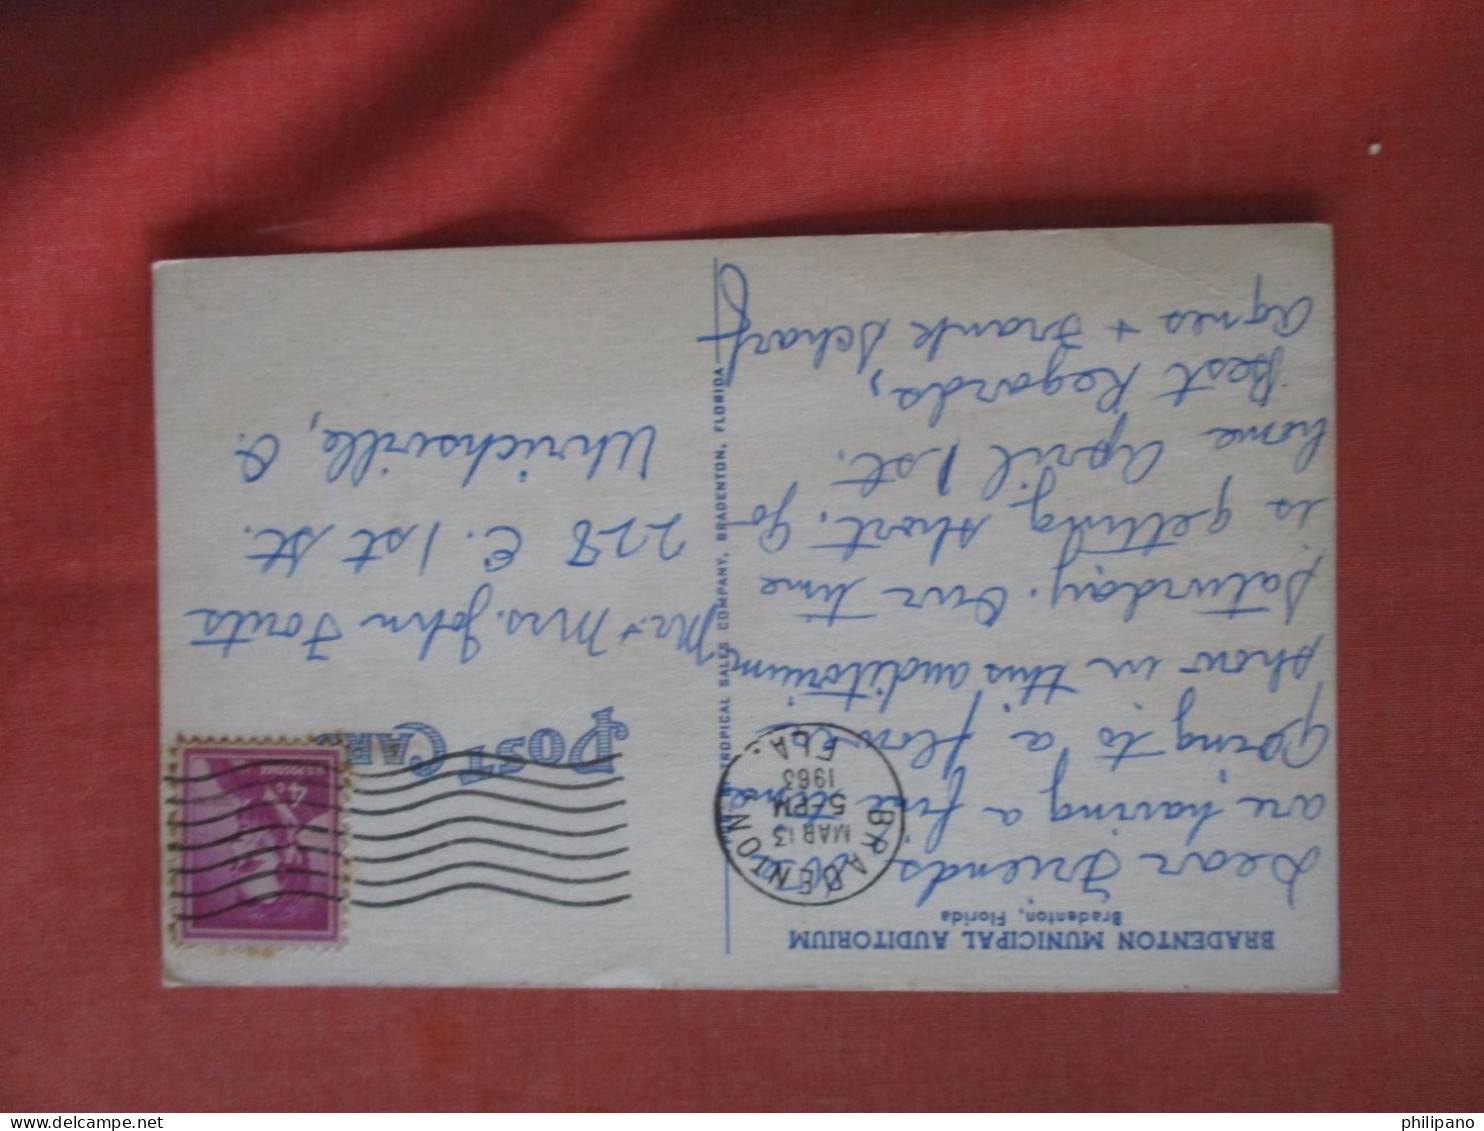 BRADENTON MUNICIPAL AUDITORIUM
Bradenton, Florida
Dear Friends,
are having a fine time
Going to a flower
show in this auditorium
Saturday. Our time
is getting short. Go
home April 1st.
Best Regards,
Agnes + Frank Scharf
BRADENTON
MAR 13
5 PM
1963
FLA.
TROPICAL SALES COMPANY, BRADENTON, FLORIDA
POST CARD
4¢
U.S. POSTAGE
Mr. + Mrs. John Fouts
228 E. 1st St.
Uhrichsville, O.
philipano